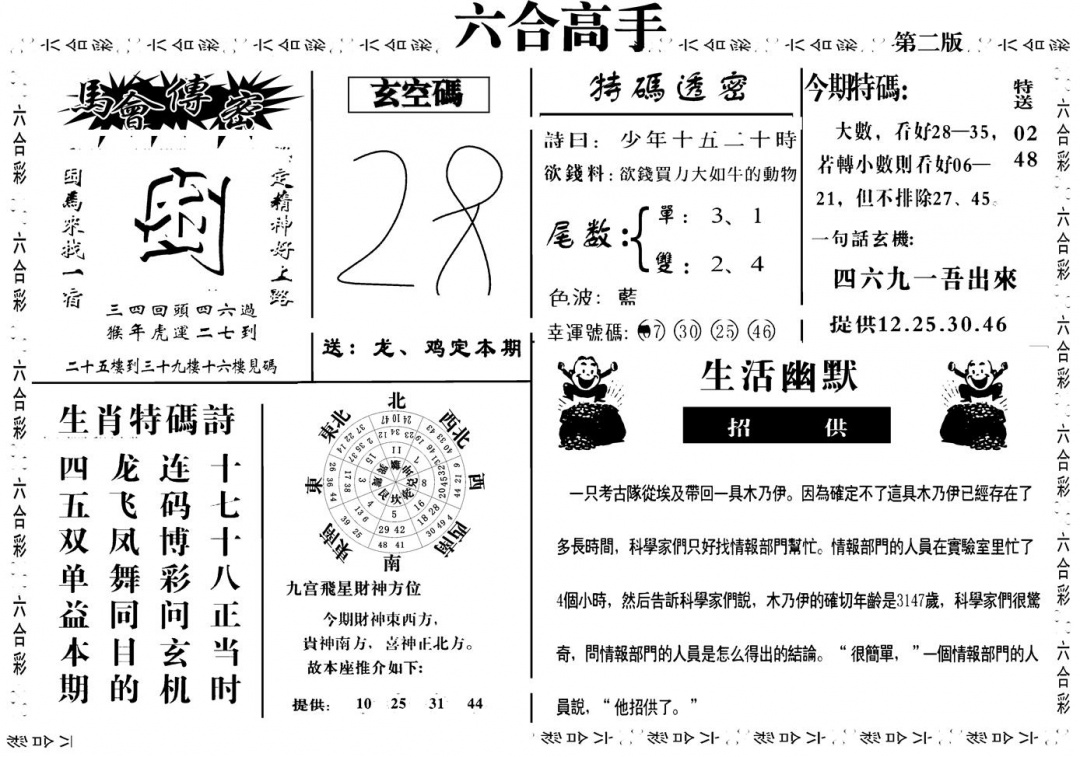 六合高手
第二版
馬會傳密
因馬來找一宿
定精神好上路
三四回頭四六過
猴年虎運二七到
二十五樓到三十九樓十六樓見碼
玄空碼
28
送：龙、鸡定本期
特碼透密
詩曰：少年十五二十時
欲錢料：欲錢買力大如牛的動物
尾数：
單：3、1
雙：2、4
色波：藍
幸運號碼：(30) (25) (46)
今期特碼:
特送
02
48
大數，看好28—35，
若轉小數則看好06—
21，但不排除27、45。
一句話玄機:
四六九一吾出來
提供12.25.30.46
生肖特碼詩
十七十八正当时
连码博彩问玄机
龙飞凤舞同目的
四五双单益本期
北
西北
西
西南
南
東南
東
東北
九宫飛星財神方位
今期財神東西方，
貴神南方，喜神正北方。
故本座推介如下:
提供: 10 25 31 44
生活幽默
招 供
一只考古隊從埃及帶回一具木乃伊。因為確定不了這具木乃伊已經存在了
多長時間，科學家們只好找情報部門幫忙。情報部門的人員在實驗室里忙了
4個小時，然后告訴科學家們說，木乃伊的確切年齡是3147歲，科學家們很驚
奇，問情報部門的人員是怎么得出的結論。“很簡單，”一個情報部門的人
員說，“他招供了。”
六合彩